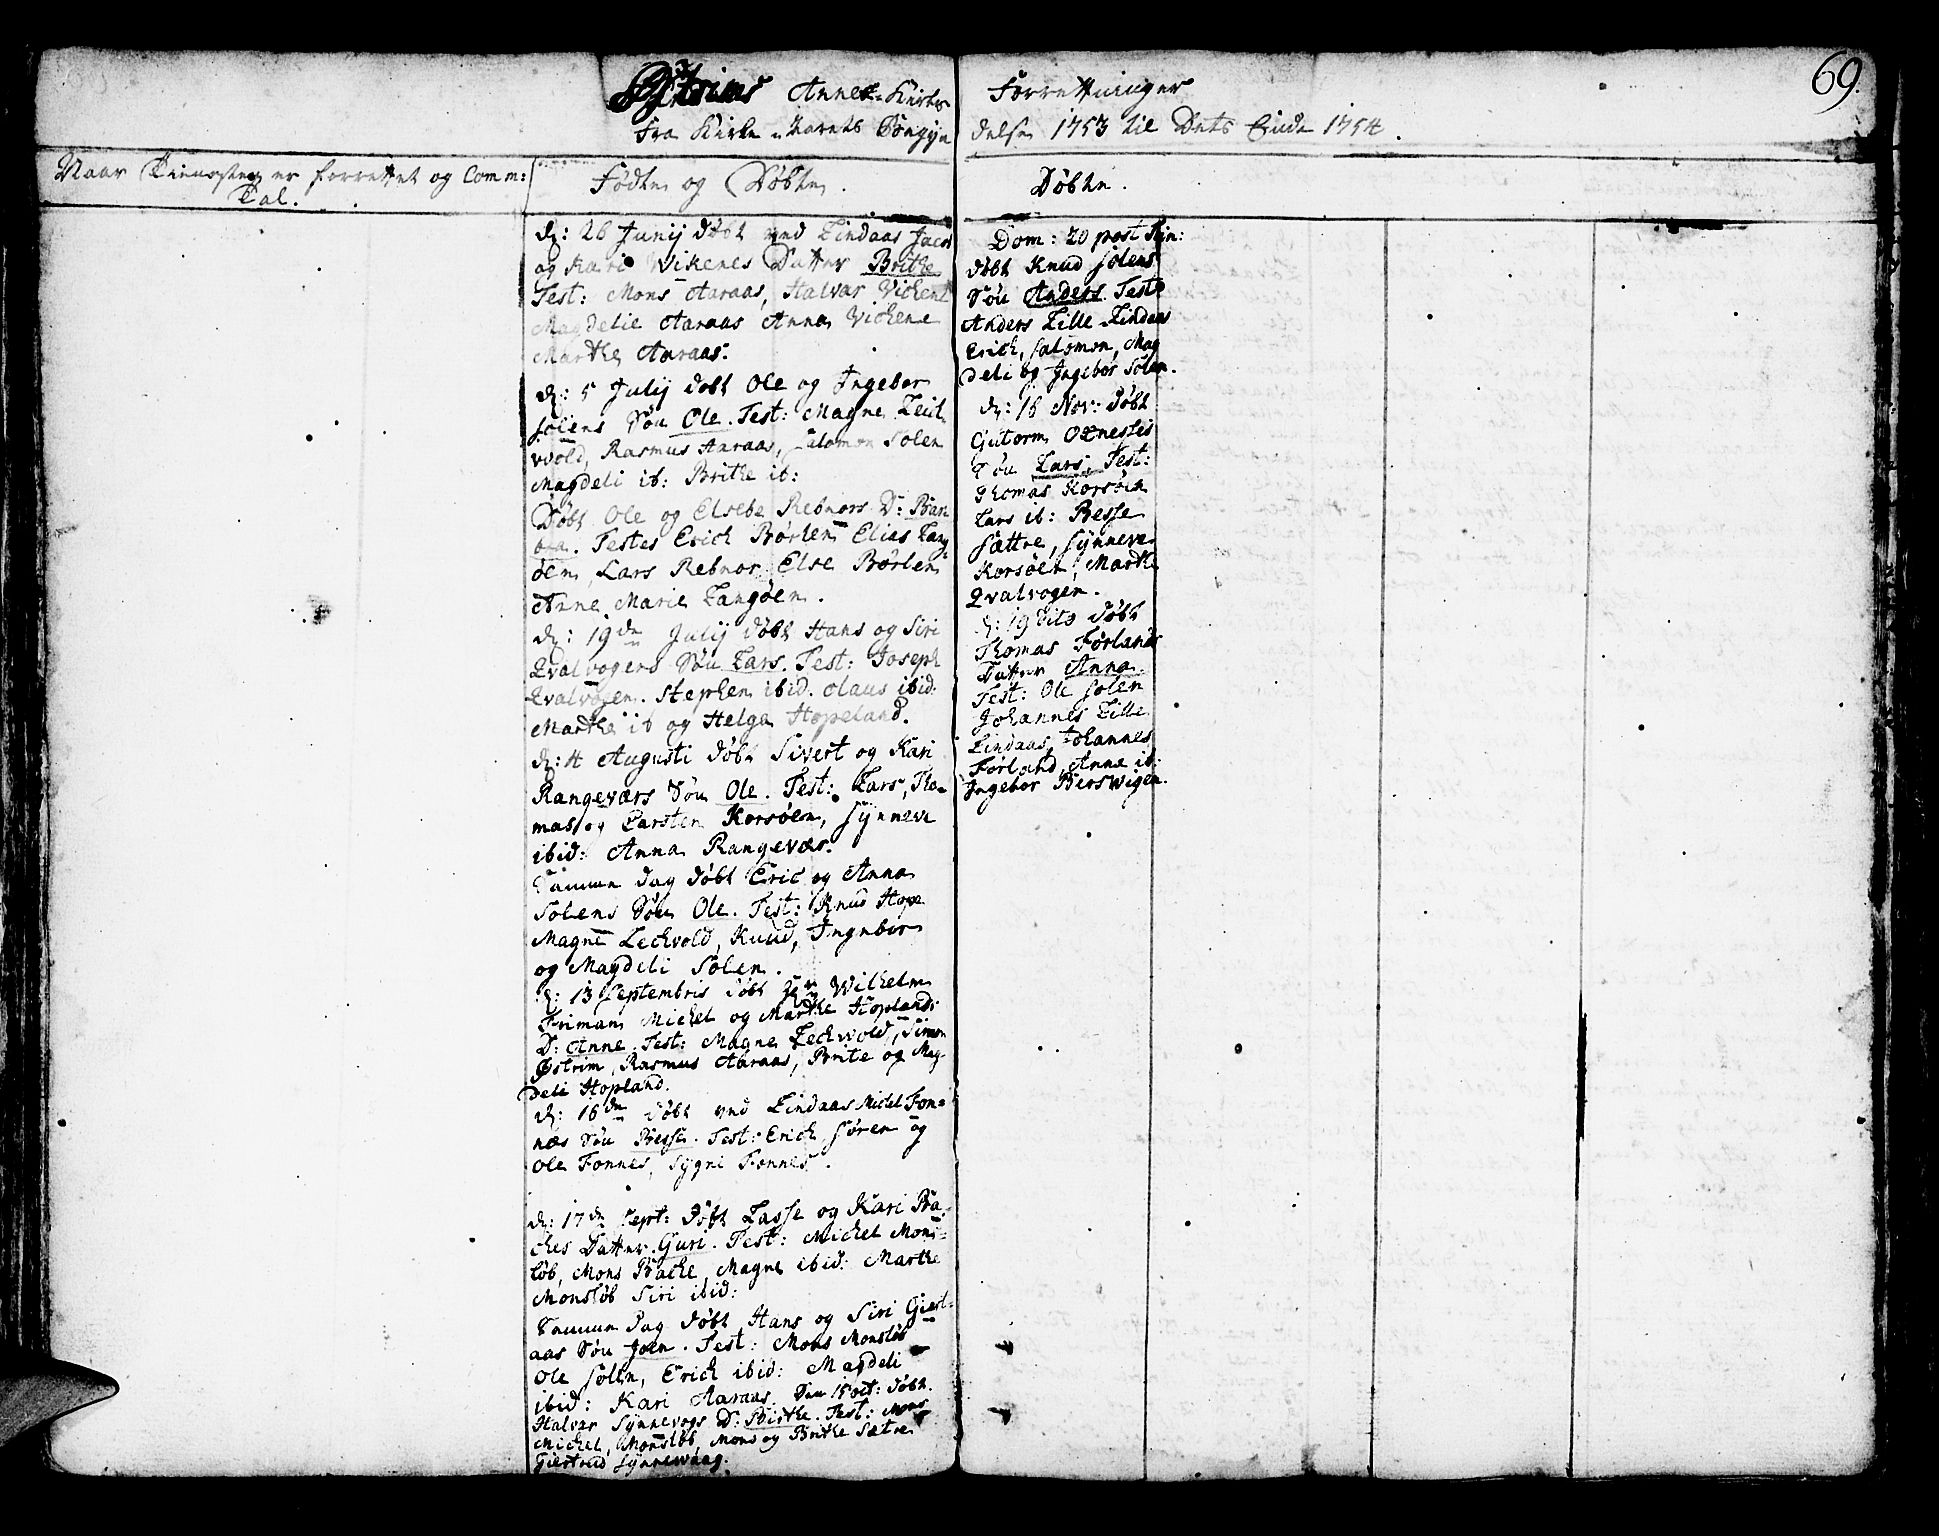 69.
Østrims Annex-Kirkes Forretninger
Fra Kirke-Aarets Begyn delse 1753 til Dets Ende 1754.
Naar Tienesten er forrettet og Comm:
Tal.
Fødte og Døbte.
d: 26 Junij døbt ved Lindaas Jacob
og Kari Vikenes Datter Brithe
Test: Mons Aaraas, Halvar Vichene
Magdelie Aaraas Anna Vichene
Marthe Aaraas.
d: 5 Julij døbt Ole og Ingebor
Solens Søn Ole. Test: Magne Lech
wold, Rasmus Aaraas, Salomon Solen
Magdeli ib: Brithe ib:
Døbt Ole og Elsebe Rebnors D: Bar
bra. Testes Erich Børlen Elias Lang
øen, Lars Rebnor, Else Børlen
Anne Marie Langøen.
d: 19de Julij døbt Hans og Siri
Qvalvogens Søn Lars. Test: Joseph
Qvalvogen. Stephen ibid. Claus ibid:
Marthe ib og Helga Hopeland.
d: 4 Augusti døbt Sivert og Kari
Rangeværs Søn Ole. Test: Lars, Tho-
mas og Carsten Korsøen, Synneve
ibid: Anna Rangevær.
Samme dag døbt Eric og Anna
Solens Søn Ole. Test: Knud Hope
Magne Lechvold, Knud, Ingebor
og Magdeli Solen.
d: 13 Septembris døbt Wilhelm
Friman Michel og Marthe Hoplands
D: Anne. Test: Magne Lechwold, Simon
Østrim, Rasmus Aaraas, Brite og Mag-
deli Hopland.
d: 16de døbt ved Lindaas Michel Fon-
nes Søn Besse. Test: Erich Søren og
Ole Fonnes, Sygni Fonnes.
d: 17de Sept: døbt Lasse og Kari Ba
ches Datter Guri. Test: Michel Mons-
løb, Mons Bache, Magne ibid: Marthe
Monsløb Siri ibid:
Samme Dag døbt Hans og Siri Giest-
aas Søn Joen. Test: Mons Monsløb
Ole Solen, Erich ibid: Magdeli
ibid: Kari Aaraas. Den 15 oct: døbt
Halvar Synnevogs D: Birthe. Test: Mons
Michel, Monsløb, Mons og Brithe Sætre
Giertrud Synnevaag.
Døbte.
Dom: 20 post Trin:
døbt Knud Solens
Søn Anders. Test
Anders Lille Lindaas
Erich, Salomon, Mag
deli og Ingebor Solen.
d: 16 Nov: døbt
Gutorm Oxnesses
Søn Lars. Test:
Thomas Korsøen
Lars ib: Besse
Sættre, Synneve
Korsøen, Marthe
Qvalvogen.
d: 19 dito døbt
Thomas Førlands
Datter Anna.
Test: Ole Solen
Johannes Lille
Lindaas, Johannes
Førland, Anna ib:
Ingebor Berswigen.